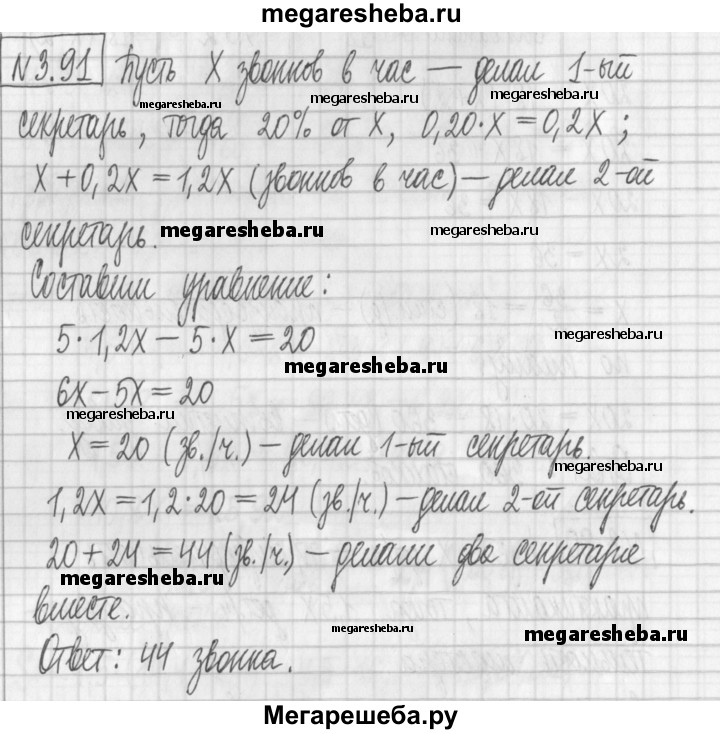 megaresheba.ru
N3.91 Пусть X звонков в час — делал 1-ый
megaresheba.ru megaresheba.ru megaresheba.ru
секретарь, тогда 20% от X, 0,20·X = 0,2X;
X + 0,2X = 1,2X (звонков в час) — делал 2-ой
секретарь. megaresheba.ru megaresheba.ru
Составим уравнение:
5·1,2X − 5·X = 20
megaresheba.ru
megaresheba.ru
6X − 5X = 20
megaresheba.ru
X = 20 (зв./ч.) — делал 1-ый секретарь.
megaresheba.ru
1,2X = 1,2·20 = 24 (зв./ч.) — делал 2-ой секретарь.
20 + 24 = 44 (зв./ч.) — делали два секретаря
megaresheba.ru
вместе.
megaresheba.ru megaresheba.ru
Ответ: 44 звонка.
Мегарешеба.ру